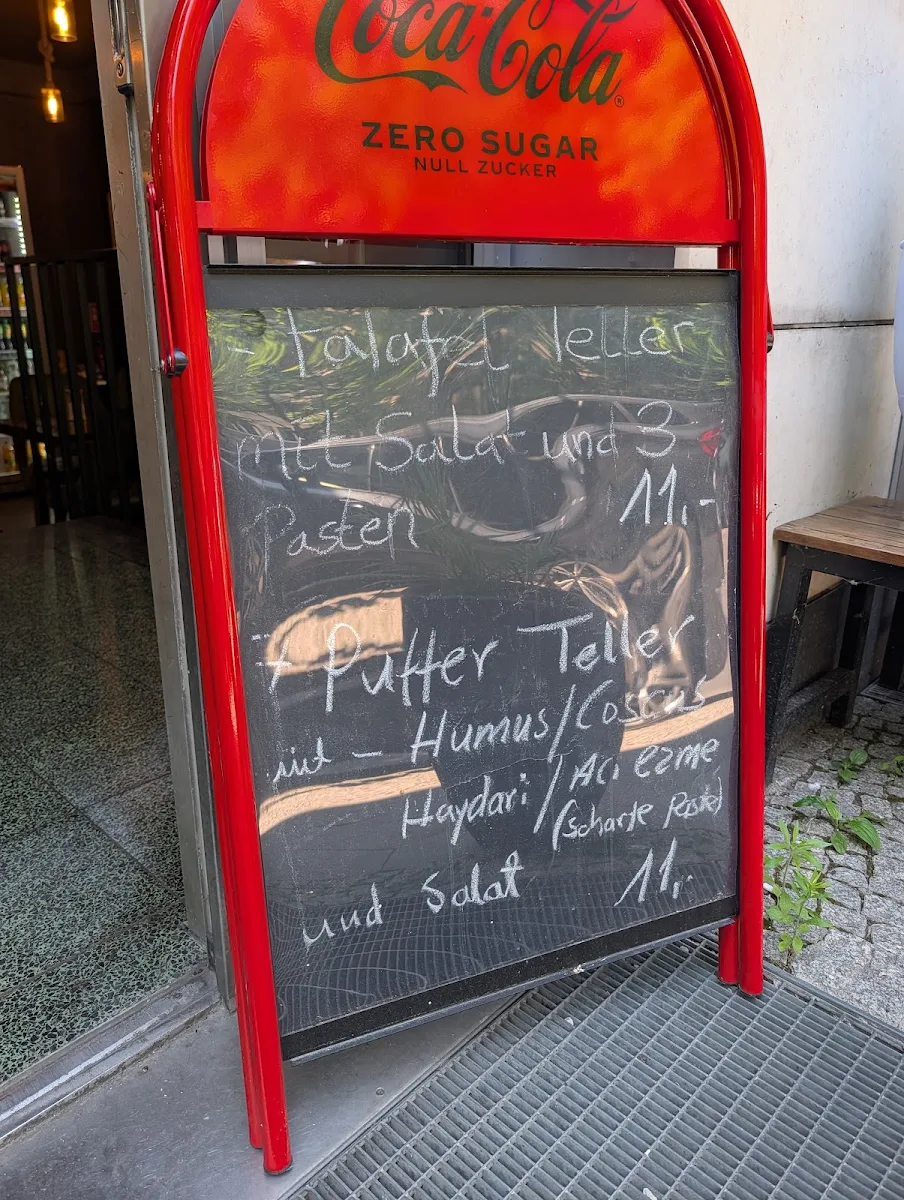 Coca-Cola
ZERO SUGAR
NULL ZUCKER
- Falafel Teller
mit Salat und 3
Pasten 11,-
+ Puffer Teller
mit - Humus/Coscus
Haydari/Aci ezme
(Scharfe Paste)
und Salat 11,-